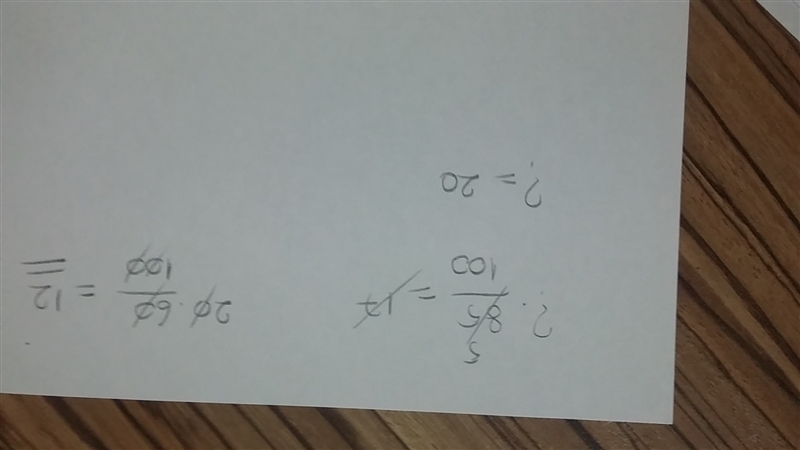 5
? . 85/100 = 17
? = 20
20 . 60/100 = 12